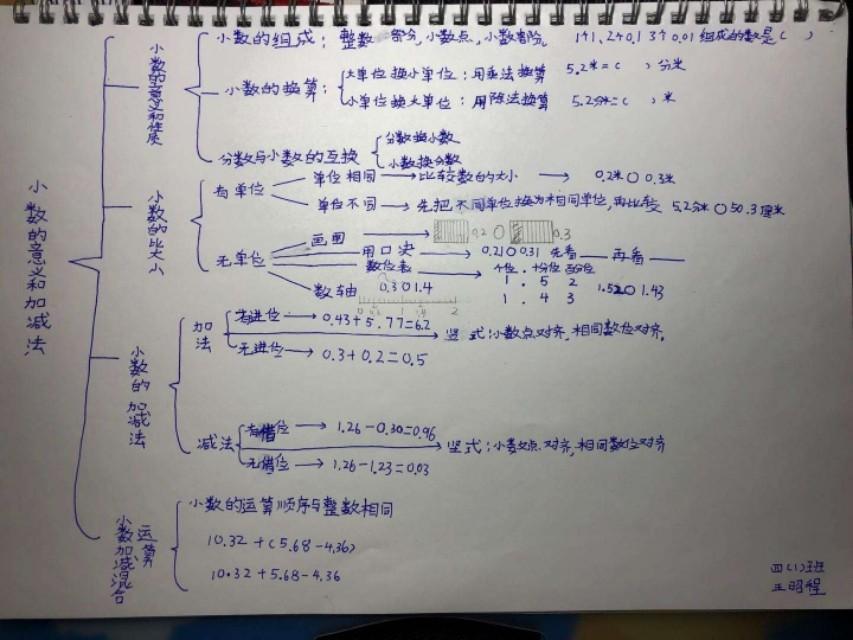 小数的意义和加减法
小数的意义和性质
小数的组成：整数部分，小数点，小数部分 1个1、2个0.1 3个0.01组成的数是（ ）
小数的换算：
大单位换小单位：用乘法换算 5.2米=（ ）分米
小单位换大单位：用除法换算 5.2分米=（ ）米
分数与小数的互换
分数换小数
小数换分数
小数的比大小
有单位
单位相同 → 比较数的大小 → 0.2米○0.3米
单位不同 → 先把不同单位换为相同单位，再比较 5.2分米○50.3厘米
无单位
画图 → 0.2○0.3
用口决 → 0.21○0.31 先看——再看——
数位表 → 个位．十分位 百分位
1 . 5 2
1 . 4 3
1.52○1.43
数轴 0.3○1.4
0 1 2
小数的加减法
加法
有进位 → 0.43+5.77=6.2
无进位 → 0.3+0.2=0.5
竖式：小数点对齐，相同数位对齐。
减法
有借位 → 1.26-0.30=0.96
无借位 → 1.26-1.23=0.03
竖式：小数点对齐，相同数位对齐
小数加减混合运算
小数的运算顺序与整数相同
10.32+(5.68-4.36)
10.32+5.68-4.36
四(1)班
王昭程